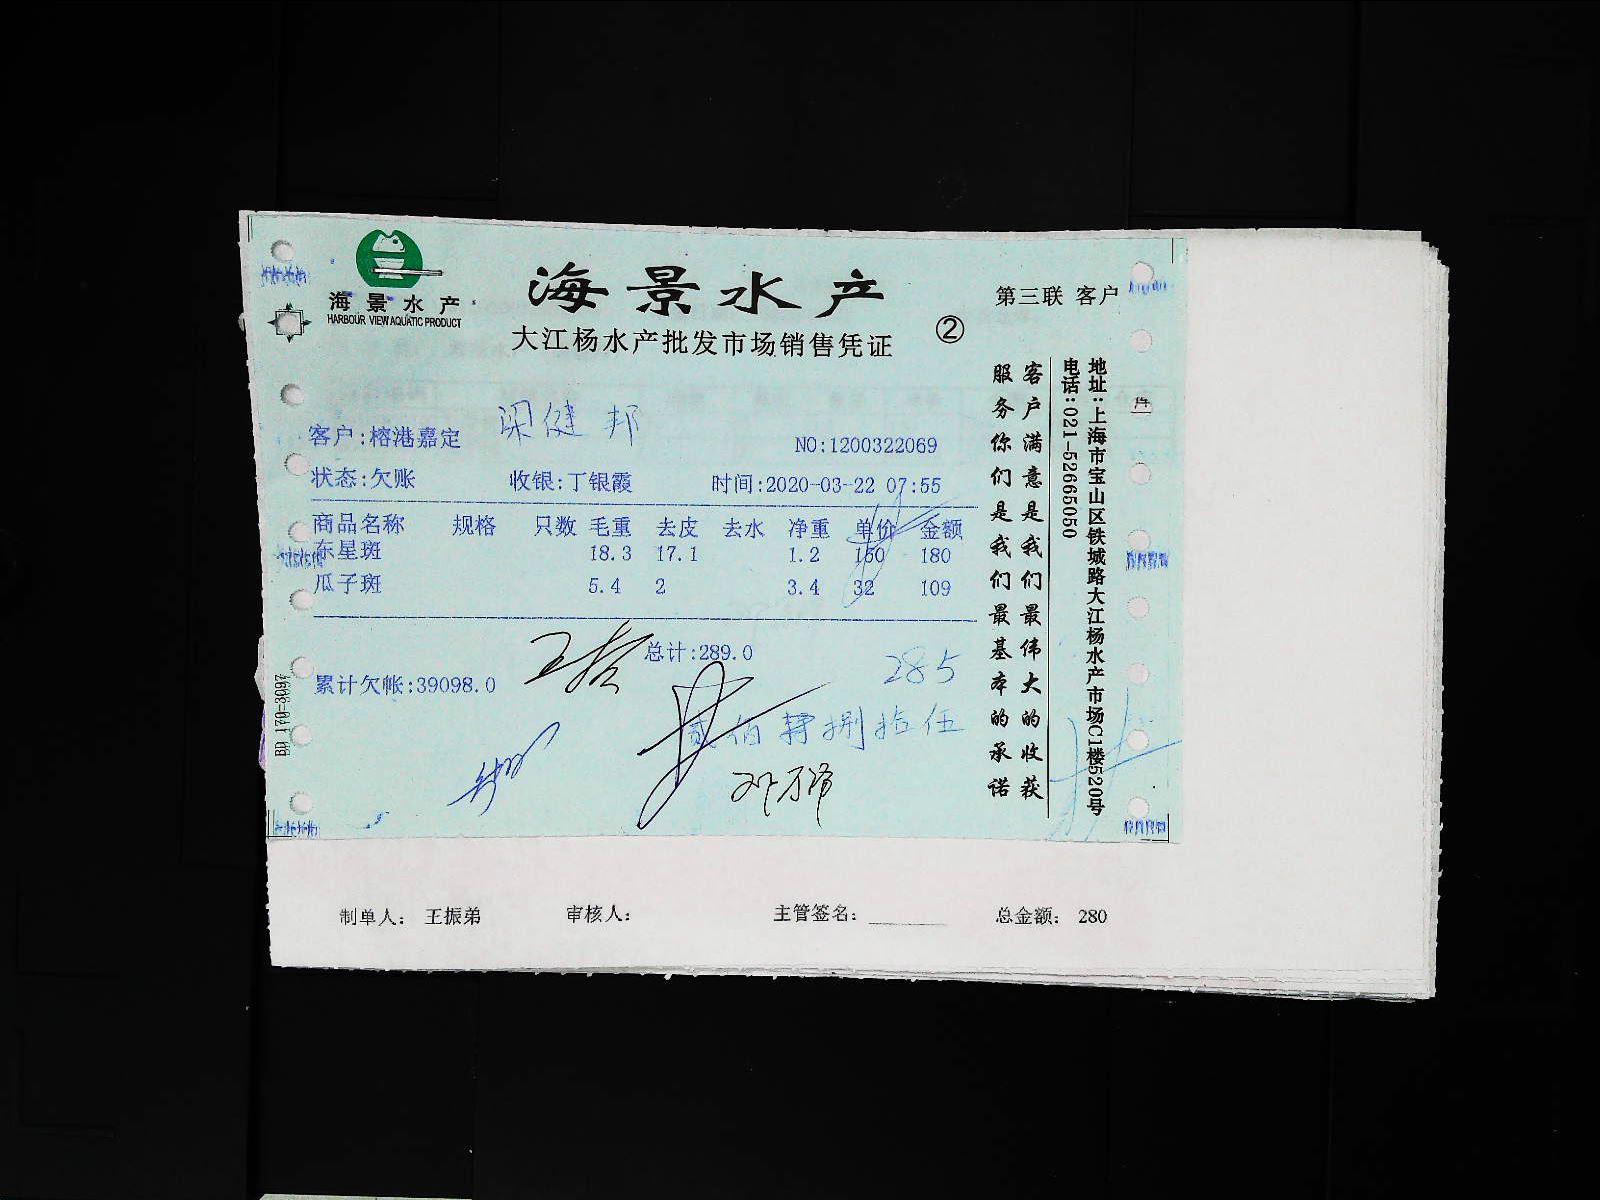 海景水产
HARBOUR VIEW AQUATIC PRODUCT
海景水产
第三联 客户
大江杨水产批发市场销售凭证 ②
客户:榕港嘉定 梁健邦
NO:1200322069
状态:欠账 收银:丁银霞 时间:2020-03-22 07:55
商品名称 规格 只数 毛重 去皮 去水 净重 单价 金额
东星斑 18.3 17.1 1.2 150 180
瓜子斑 5.4 2 3.4 32 109
总计:289.0
285
累计欠帐:39098.0
贰佰捌拾伍
客户满意是我们最伟大的收获
服务你们是我们最基本的承诺
地址:上海市宝山区铁城路大江杨水产市场C1楼520号
电话:021-52665050
BD 170-3097
制单人: 王振弟 审核人: 主管签名: 总金额: 280